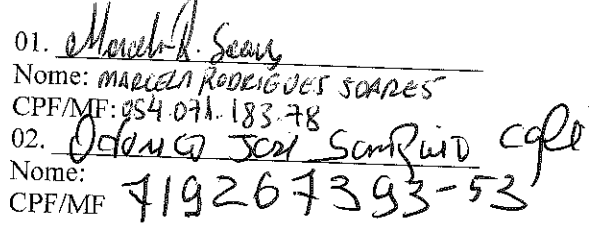 01. Marcela R. Soares
Nome: MARCELA RODRIGUES SOARES
CPF/MF: 054.071.183.78
02. José
Nome:
CPF/MF 719267393-53